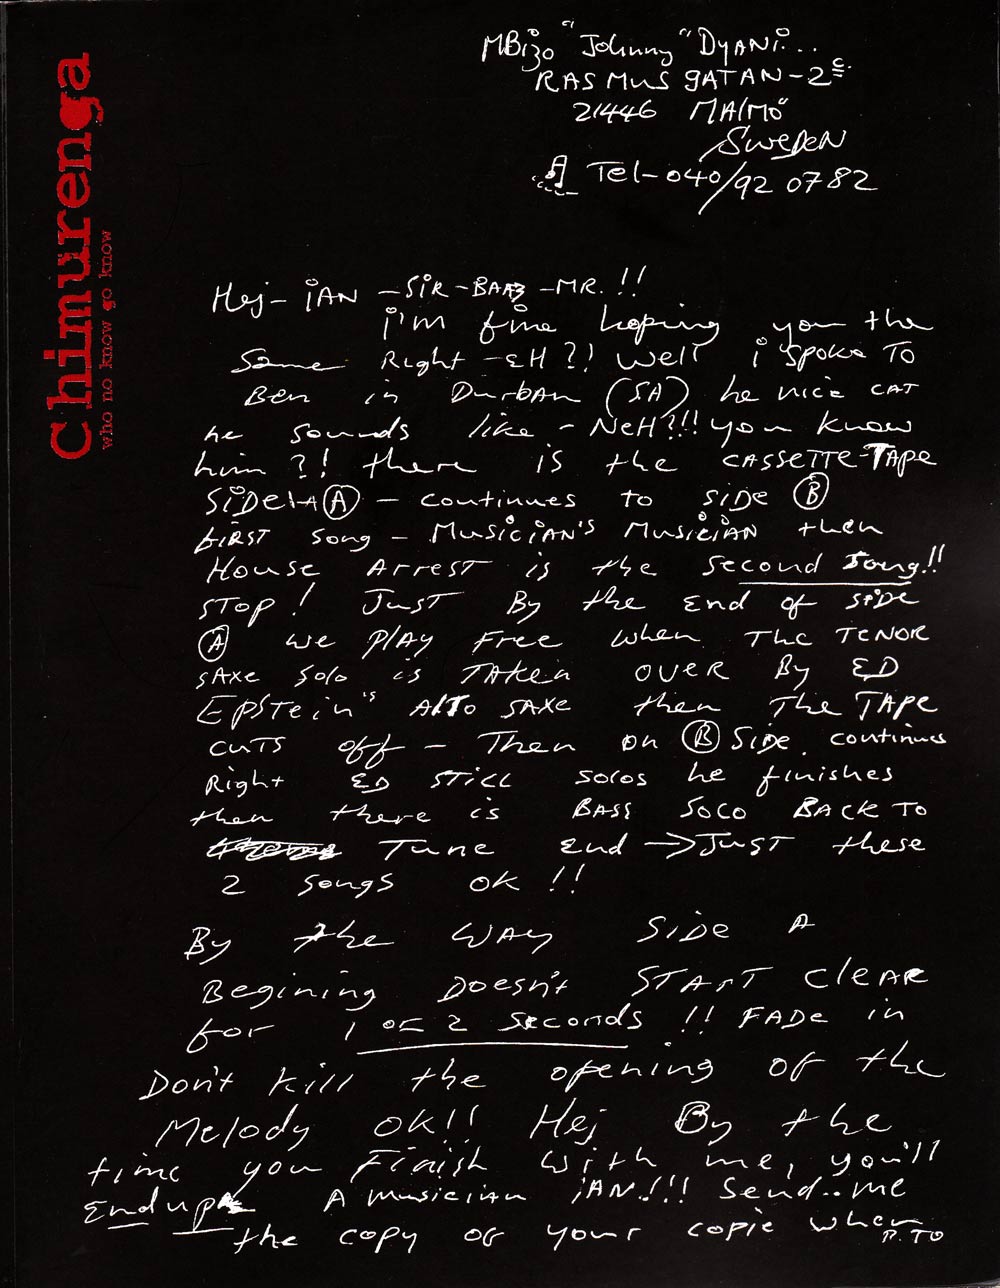 Chimurenga
who no know go know
MBizo "Johnny" DYANi...
RASMUS gATAN-2c.
21446 MAlMö
SWEDEN
Tel-040/92 0782
Hej- iAN -SiR- -MR.!!
i'm fine hoping you the
Same Right -EH?! Well i spoke TO
Ben in Durban (SA) he nice CAT
he sounds like - NeH?!! you know
him?! there is the CASSETTE-TApe
SiDe A - continues to side B
FiRST song - MusiciAN's MusiciAN then
House ARREST is the second song!!
STOP! JusT By the end of SiDe
A we PlAY Free when The TENOR
sAxe solo is TAken OVER By ED
EpsTein's AlTo SAxe then The TApe
cuTs off - Then on B Side continues
Right ED STill solos he finishes
then there is BASS Solo BACK TO
Tune end ->JusT these
2 songs ok!!
By the WAY Side A
Begining Doesn't START CleAR
for 1 or 2 Seconds!! FADe in
Don't kill the opening of the
Melody ok!! Hej By the
time you Finish With me, you'll
End up A musician iAN!!! Send..me
the copy of your copie when
P.TO